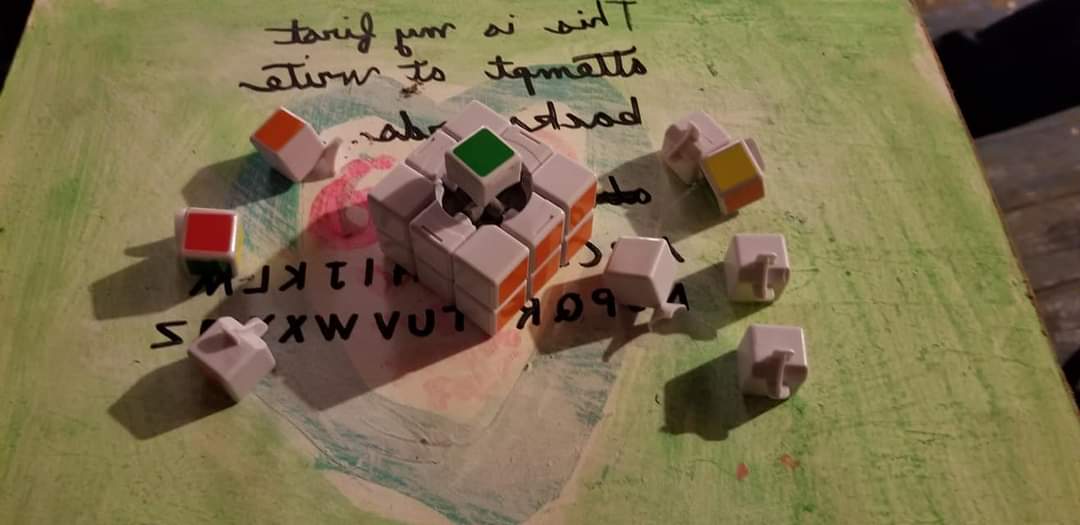 This is my first
attempt to write
back rds.
C H I J K L M
P Q R T U V W X Z